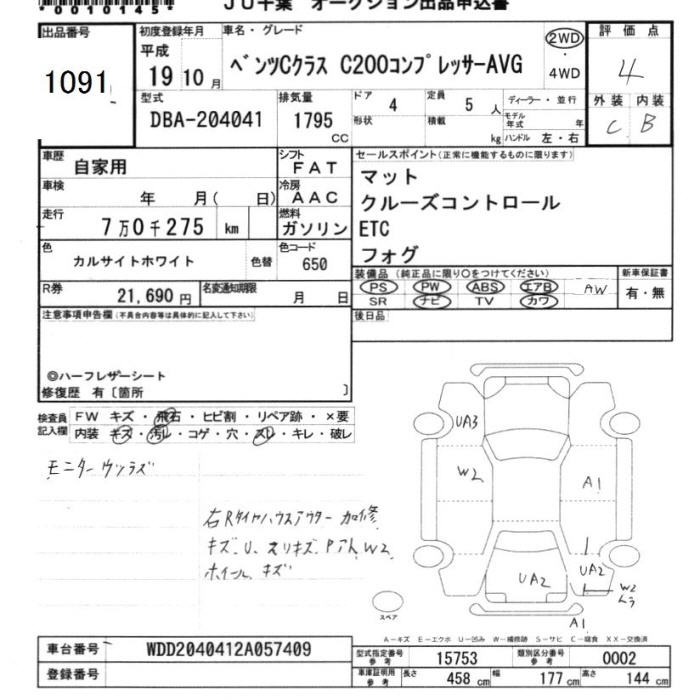 *00101454*
JU千葉 オークション出品申込書
出品番号 初度登録年月 車名・グレード 評価点
1091 平成 19 10月 ベンツCクラス C200コンプレッサーAVG 2WD ・ 4WD 4
型式 排気量 ドア 4 定員 5 人 ディーラー・並行 外装 内装
DBA-204041 1795 CC 形状 積載 kg モデル年式 年 ハンドル 左・右 C B
車歴 自家用 シフト FAT セールスポイント(正常に機能するものに限ります)
車検 年 月( 日) 冷房 AAC マット
走行 7万0千275 km 燃料 ガソリン クルーズコントロール
ETC
フォグ
色 カルサイトホワイト 色替 色コード 650
装備品 (純正品に限り○をつけてください) 新車保証書
PS PW ABS エアB AW 有・無
SR ナビ TV カワ
R券 21,690円 名変通知期限 月 日
注意事項申告欄(不具合内容等は具体的に記入して下さい) 後日品
◎ハーフレザーシート
修復歴 有〔箇所 〕
検査員記入欄 FW キズ・飛石・ヒビ割・リペア跡・×要
内装 キズ・汚レ・コゲ・穴・スレ・キレ・破レ
モニターウツラズ
右Rタイヤハウスアウター加修
キズ、U、スリキズ、Pアト、W2
ホイール キズ
UA3
W2
A1
UA2
UA2
W2
ムラ
A1
スペア
A-キズ E-エクボ U-凹み W-補修跡 S-サビ C-腐食 XX-交換済
車台番号 WDD2040412A057409
登録番号
型式指定番号 参考 15753 類別区分番号 参考 0002
車庫証明用 参考 長さ 458 cm 幅 177 cm 高さ 144 cm